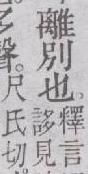 離別也。釋言
誃見
多聲。尺氏切。